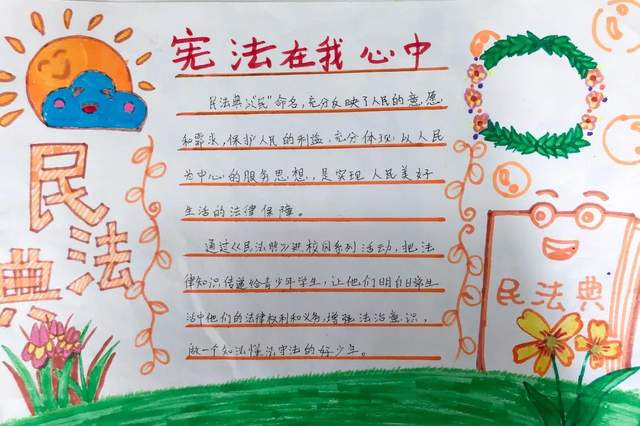 宪法在我心中
民法典以"民"命名,充分反映了人民的意愿
和需求,保护人民的利益,充分体现,以人民
为中心的服务思想,是实现人民美好
生活的法律保障。
通过《民法典》进校园系列活动,把法
律知识传递给青少年学生,让他们明白日常生
活中他们的法律权利和义务,增强法治意识,
做一个知法懂法守法的好少年。
民法典
民法典